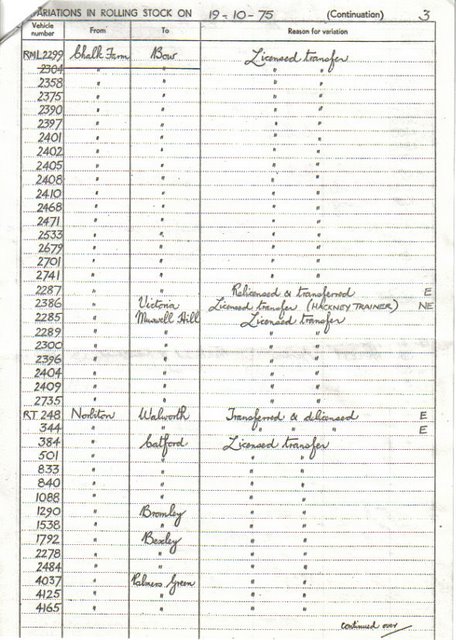 VARIATIONS IN ROLLING STOCK ON 19-10-75 (Continuation) 3
Vehicle number From To Reason for variation
RML2299 Chalk Farm Bow Licensed transfer
2304 " " " "
2358 " " " "
2375 " " " "
2390 " " " "
2397 " " " "
2401 " " " "
2402 " " " "
2405 " " " "
2408 " " " "
2410 " " " "
2468 " " " "
2471 " " " "
2533 " " " "
2679 " " " "
2701 " " " "
2741 " " " "
2287 " " Relicensed & transferred E
2386 " Victoria Licensed transfer (HACKNEY TRAINER) NE
2285 " Muswell Hill Licensed transfer
2289 " " " "
2300 " " " "
2396 " " " "
2404 " " " "
2409 " " " "
2735 " " " "
RT 248 Norbiton Walworth Transferred & delicensed E
344 " " " " " E
384 " Catford Licensed transfer
501 " " " "
833 " " " "
840 " " " "
1088 " " " "
1290 " Bromley " "
1538 " " " "
1792 " Bexley " "
2278 " " " "
2484 " " " "
4037 " Palmers Green " "
4125 " " " "
4165 " " " "
continued over